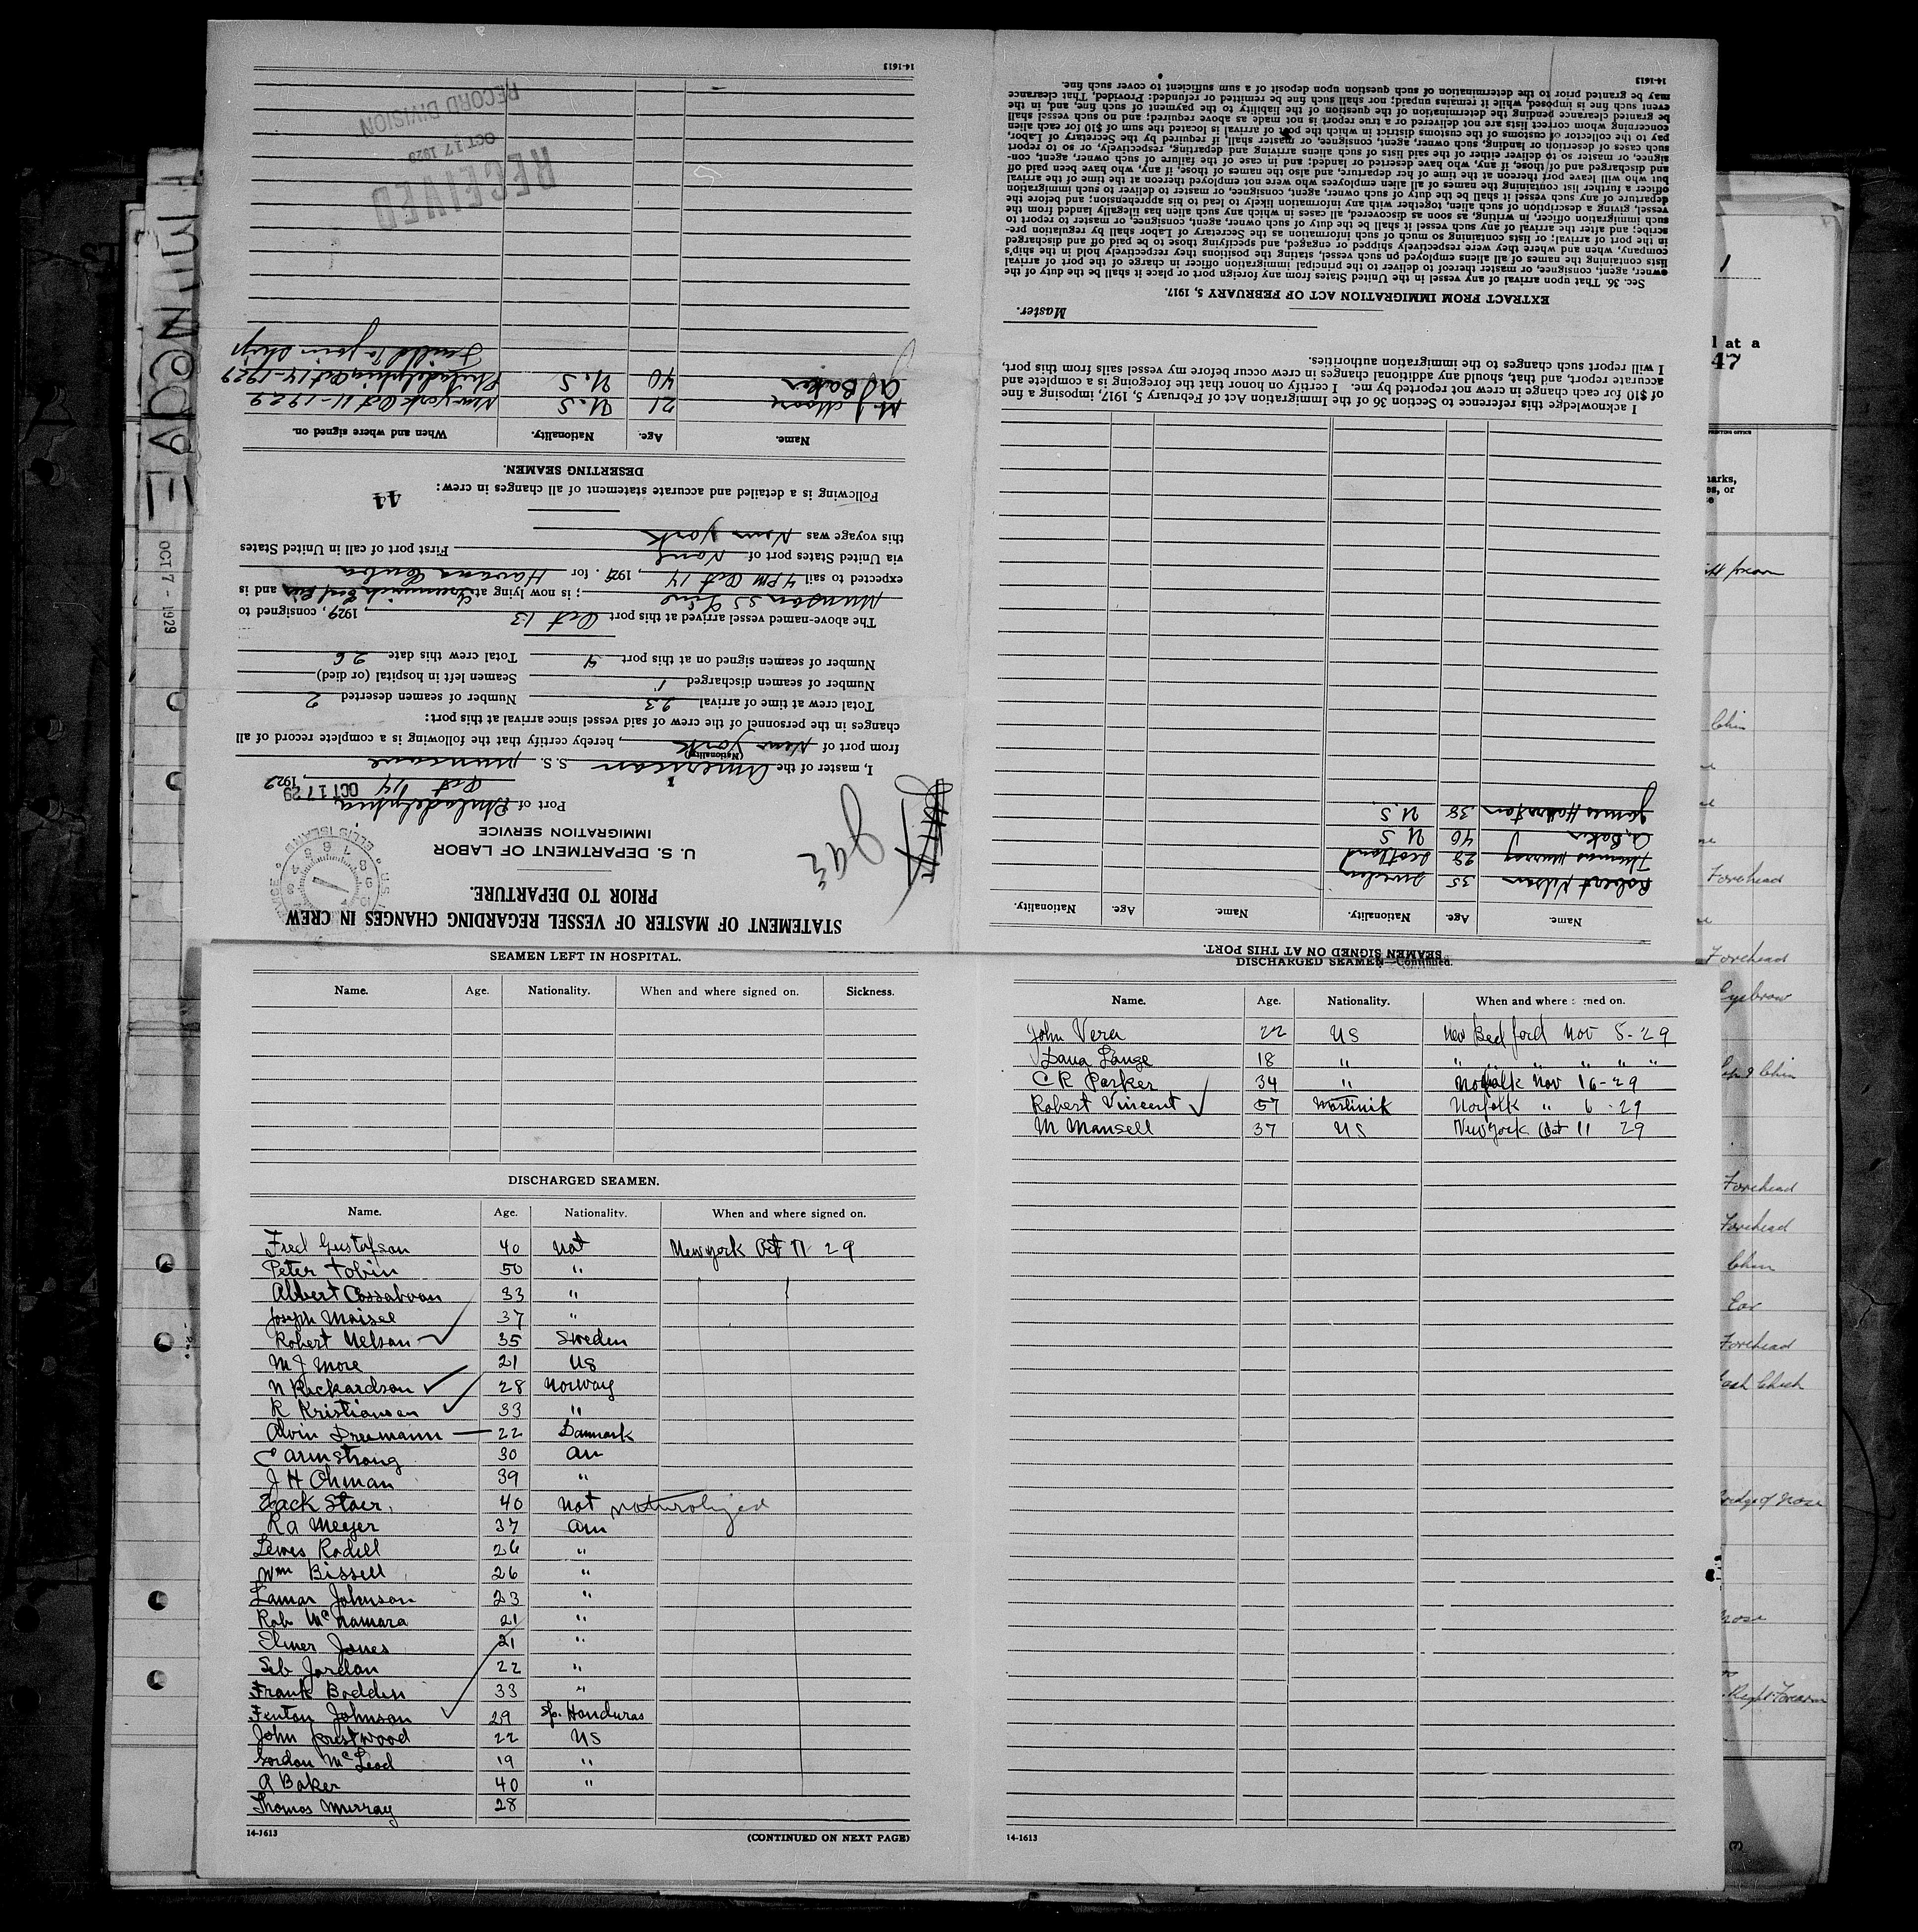 STATEMENT OF MASTER OF VESSEL REGARDING CHANGES IN CREW
PRIOR TO DEPARTURE.
U. S. DEPARTMENT OF LABOR
IMMIGRATION SERVICE
Port of Philadelphia
Oct 14, 1929
OCT 17 29
I, master of the American S. S. Muncove
(Nationality)
from port of New York, hereby certify that the following is a complete record of all
changes in the personnel of the crew of said vessel since arrival at this port:
Total crew at time of arrival 23 Number of seamen deserted 2
Number of seamen discharged 1 Seamen left in hospital (or died)
Number of seamen signed on at this port 4 Total crew this date 26
The above-named vessel arrived at this port Oct 13, 1929, consigned to
Munson SS Line; is now lying at Greenwich and is
expected to sail 4 PM Oct 14, 1929. for Havana Cuba
via United States port of None First port of call in United States
this voyage was New York
Following is a detailed and accurate statement of all changes in crew:
44
DESERTING SEAMEN.
Name. Age. Nationality. When and where signed on.
M J Moore 21 U.S New York Oct 11-1929
A Baker 40 U.S Philadelphia Oct 14-1929
Failed to join ship
RECEIVED
OCT 17 1929
RECORD DIVISION
14-1613
SEAMEN SIGNED ON AT THIS PORT.
Name. Age. Nationality. Name. Age. Nationality.
Robert Nelson 35 Sweden
Thomas Murray 28 Scotland
A. Baker 40 U S
James 38 U.S.
I acknowledge this reference to Section 36 of the Immigration Act of February 5, 1917, imposing a fine
of $10 for each change in crew not reported by me. I certify on honor that the foregoing is a complete and
accurate report, and that, should any additional changes in crew occur before my vessel sails from this port,
I will report such changes to the immigration authorities.
Master.
EXTRACT FROM IMMIGRATION ACT OF FEBRUARY 5, 1917.
Sec. 36. That upon arrival of any vessel in the United States from any foreign port or place it shall be the duty of the
owner, agent, consignee, or master thereof to deliver to the principal immigration officer in charge of the port of arrival
lists containing the names of all aliens employed on such vessel, stating the positions they respectively hold in the ship's
company, when and where they were respectively shipped or engaged, and specifying those to be paid off and discharged
in the port of arrival; or lists containing so much of such information as the Secretary of Labor shall by regulation pre-
scribe; and after the arrival of any such vessel it shall be the duty of such owner, agent, consignee, or master to report to
such immigration officer, in writing, as soon as discovered, all cases in which any such alien has illegally landed from the
vessel, giving a description of such alien, together with any information likely to lead to his apprehension; and before the
departure of any such vessel it shall be the duty of such owner, agent, consignee, or master to deliver to such immigration
officer a further list containing the names of all alien employees who were not employed thereon at the time of the arrival
but who will leave port thereon at the time of her departure, and also the names of those, if any, who have been paid off
and discharged and of those, if any, who have deserted or landed; and in case of the failure of such owner, agent, con-
signee, or master so to deliver either of the said lists of such aliens arriving and departing, respectively, or so to report
such cases of desertion or landing, such owner, agent, consignee, or master, shall, if required by the Secretary of Labor,
pay to the collector of customs of the customs district in which the port of arrival is located the sum of $10 for each alien
concerning whom correct lists are not delivered or a true report is not made as above required; and no such vessel shall
be granted clearance pending the determination of the question of the liability to the payment of such fine, and, in the
event such fine is imposed, while it remains unpaid; nor shall such fine be remitted or refunded: Provided, That clearance
may be granted prior to the determination of such question upon deposit of a sum sufficient to cover such fine.
14-1613
SEAMEN LEFT IN HOSPITAL.
Name. Age. Nationality. When and where signed on. Sickness.
DISCHARGED SEAMEN.
Name. Age. Nationality. When and where signed on.
Fred Gustafson 40 Nat New york Oct 11 29
Peter Tobin 50 "
Albert Cossaboon 33 "
Joseph Maisel 37 "
Robert Nelson 35 Sweden
M J More 21 US
N Rickardson 28 Norway
R Kristiansen 33 "
Alvin Dreemann 22 Danmark
C Armstrong 30 Am
J H Ohman 39 "
Zack Staer 40 Nat naturalized
R A Meyer 37 Am
Lewes Rodell 26 "
Wm Bissell 26 "
Lamar Johnson 23 "
Rob McNamara 21 "
Elmer Jones 21 "
Seb Jordan 22 "
Frank Bodden 33 "
Fenton Johnson 29 Sp. Honduras
John Prestwood 22 US
Gordon McLeod 19 "
A Baker 40 "
Thomas Murray 28
14-1613 (CONTINUED ON NEXT PAGE)
DISCHARGED SEAMEN—Continued.
Name. Age. Nationality. When and where signed on.
John Vera 22 US New Bedford Nov 5-29
Lange 18 " " " " " "
C R Parker 34 " Norfolk Nov 16-29
Robert Vincent 57 Martinik Norfolk " 6-29
M Mansell 37 US New York Oct 11 29
14-1613
OCT 7 - 1929
l at a
47
Chin
Forehead
Forehead
Eyebrow
Forehead
Forehead
Chin
Ear
Forehead
Nose
Right Forearm